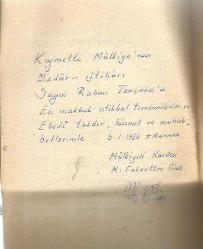 Kıymetli Mülkiye'nin
Medâr-ı İftiharı
Sayın Rahmi
En makbul istikbal temennilerim ve
Ebedî takdir, hürmet ve muhab-
betlerimle 5.1.1956 Ankara
Mülkiyeli Kardeşi
M. Fahrettin